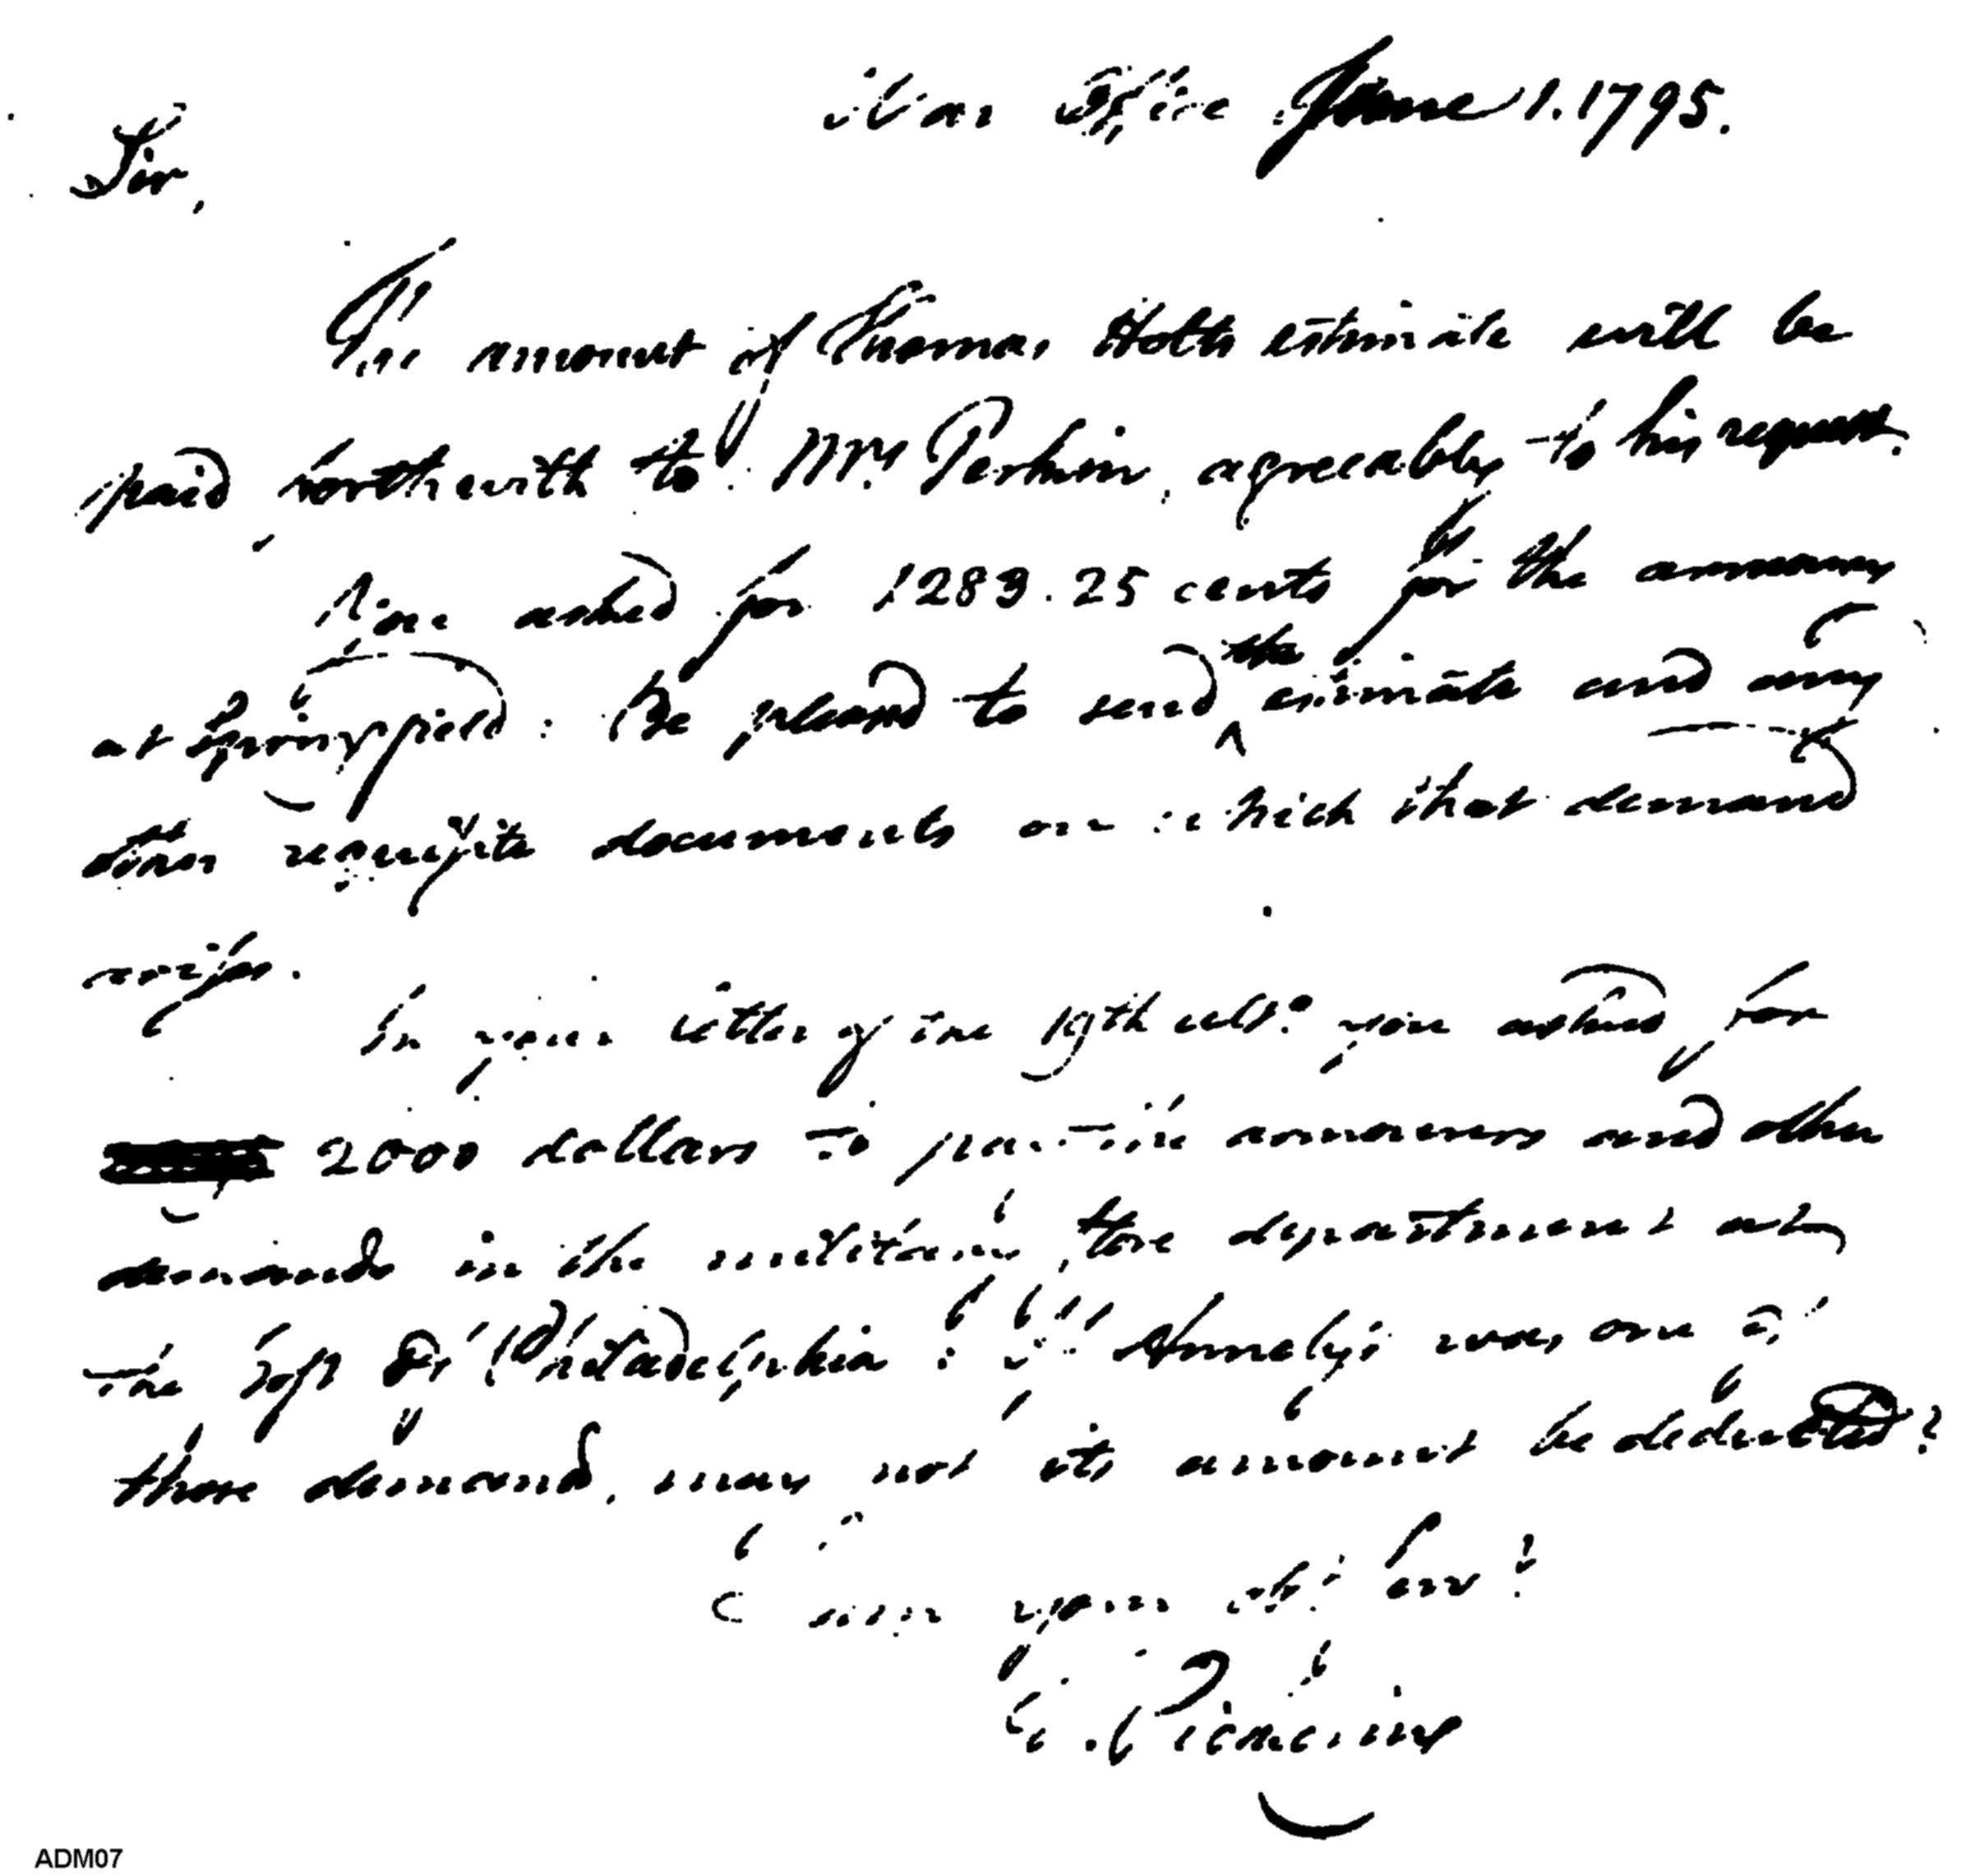 War Office June 1. 1795.
Sir,
The amount of Thomas Holts estimate will be
paid forthwith to Mr. Perkin, agreeably to his request.
You asked for 1283.25 cents for the armoury
at Springfield: Be pleased to send ^the estimate and any
other requisite documents on which that demand
arises.
In your letter of the 19th ulto. you asked for
2000 dollars to pay the armourers and other
demands in the military store department at
the Philadelphia: Annely's was one of
those demands, may not its amount be deducted?
I am your obt. servt.
T. Pickering
ADM07